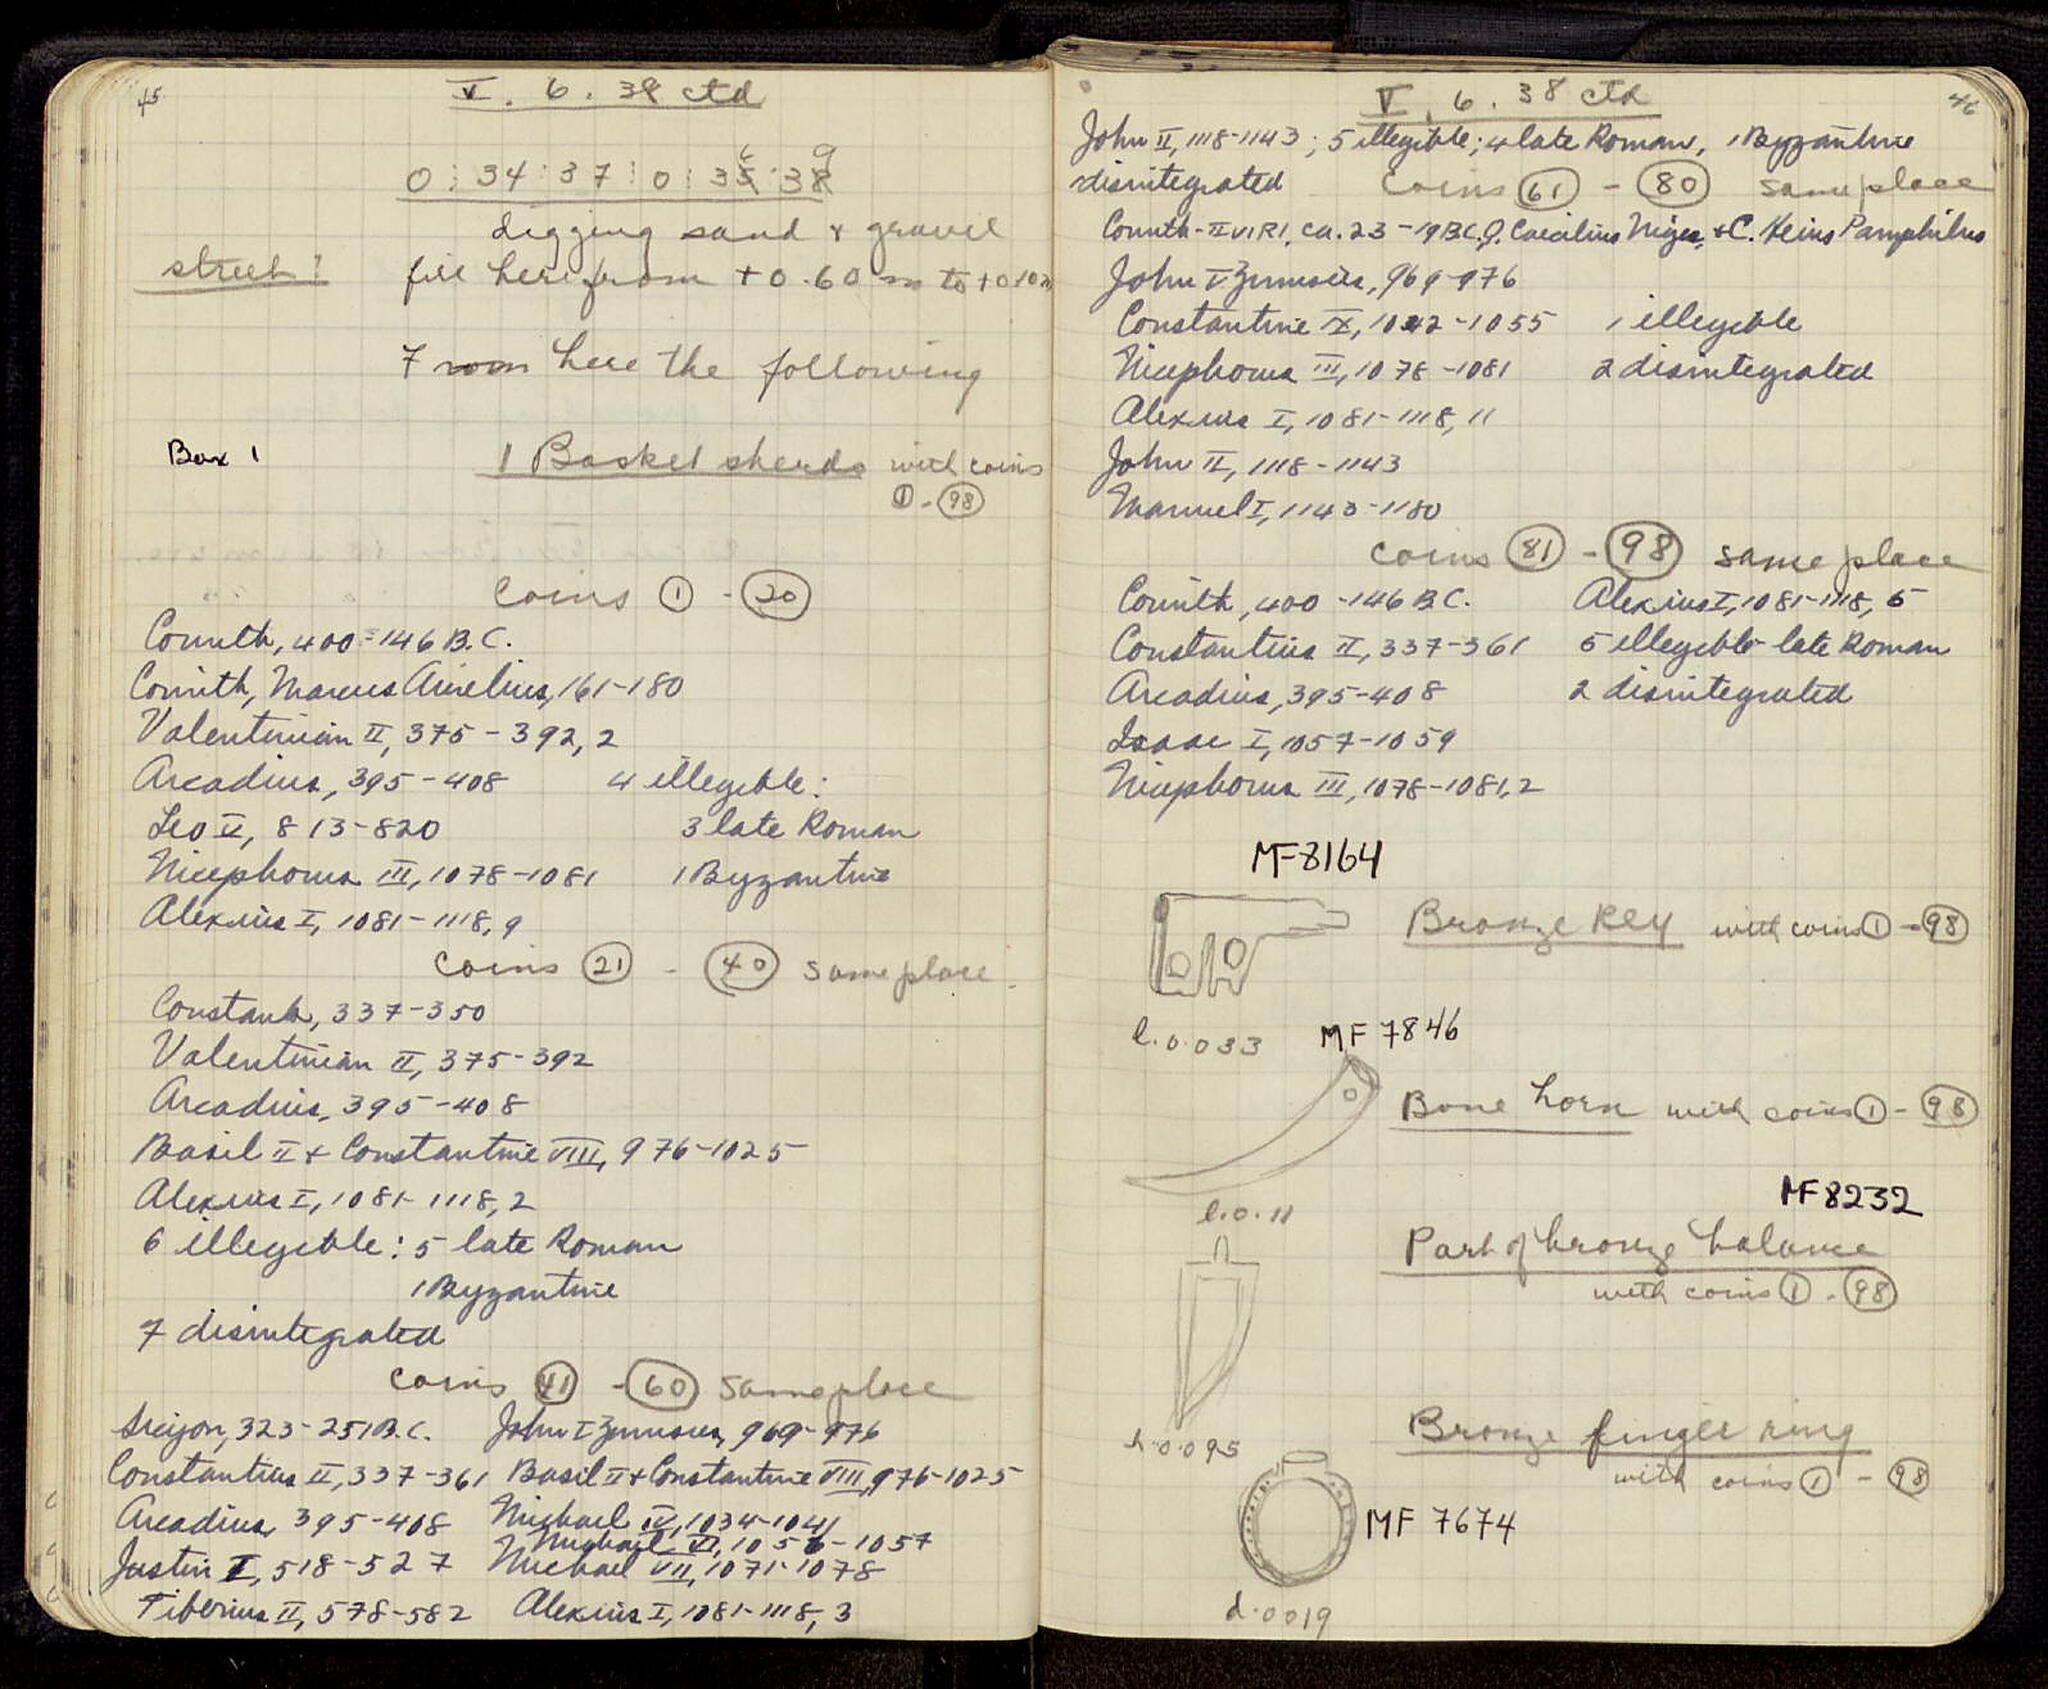 45
V. 6. 38 ctd
0:34:37:0:36:39
digging sand & gravel
street?
fill here from +0.60 m to +0.10 m
From here the following
Box 1
1 Basket sherds with coins
① - 98
coins ① - 20
Corinth, 400-146 B.C.
Corinth, Marcus Aurelius, 161-180
Valentinian II, 375-392, 2
Arcadius, 395-408 4 illegible:
Leo V, 813-820 3 late Roman
Nicephorus III, 1078-1081 1 Byzantine
Alexius I, 1081-1118, 9
coins 21 - 40 same place
Constans, 337-350
Valentinian II, 375-392
Arcadius, 395-408
Basil II + Constantine VIII, 976-1025
Alexius I, 1081-1118, 2
6 illegible: 5 late Roman
1 Byzantine
7 disintegrated
coins 41 - 60 same place
Sicyon, 323-251 B.C. John I Zimisces, 969-976
Constantius II, 337-361 Basil II + Constantine VIII, 976-1025
Arcadius, 395-408 Michael IV, 1034-1041
Michael VI, 1056-1057
Justin I, 518-527 Michael VII, 1071-1078
Tiberius II, 578-582 Alexius I, 1081-1118, 3
46
V. 6. 38 ctd
John II, 1118-1143; 5 illegible; 4 late Roman, 1 Byzantine
disintegrated coins 61 - 80 same place
Corinth - II VIRI, ca. 23-19 B.C. Q. Caecilius Niger + C. Heius Pamphilus
John I Zimisces, 969-976
Constantine IX, 1042-1055 1 illegible
Nicephorus III, 1078-1081 2 disintegrated
Alexius I, 1081-1118, 11
John II, 1118-1143
Manuel I, 1143-1180
coins 81 - 98 same place
Corinth, 400-146 B.C. Alexius I, 1081-1118, 5
Constantius II, 337-361 5 illegible late Roman
Arcadius, 395-408 2 disintegrated
Isaac I, 1057-1059
Nicephorus III, 1078-1081, 2
MF 8164
Bronze Key with coins ① - 98
l. 0.033
MF 7846
Bone horn with coins ① - 98
l. 0.11
MF 8232
Part of bronze balance
with coins ① - 98
h. 0.095
Bronze finger ring
with coins ① - 98
MF 7674
d. 0.019